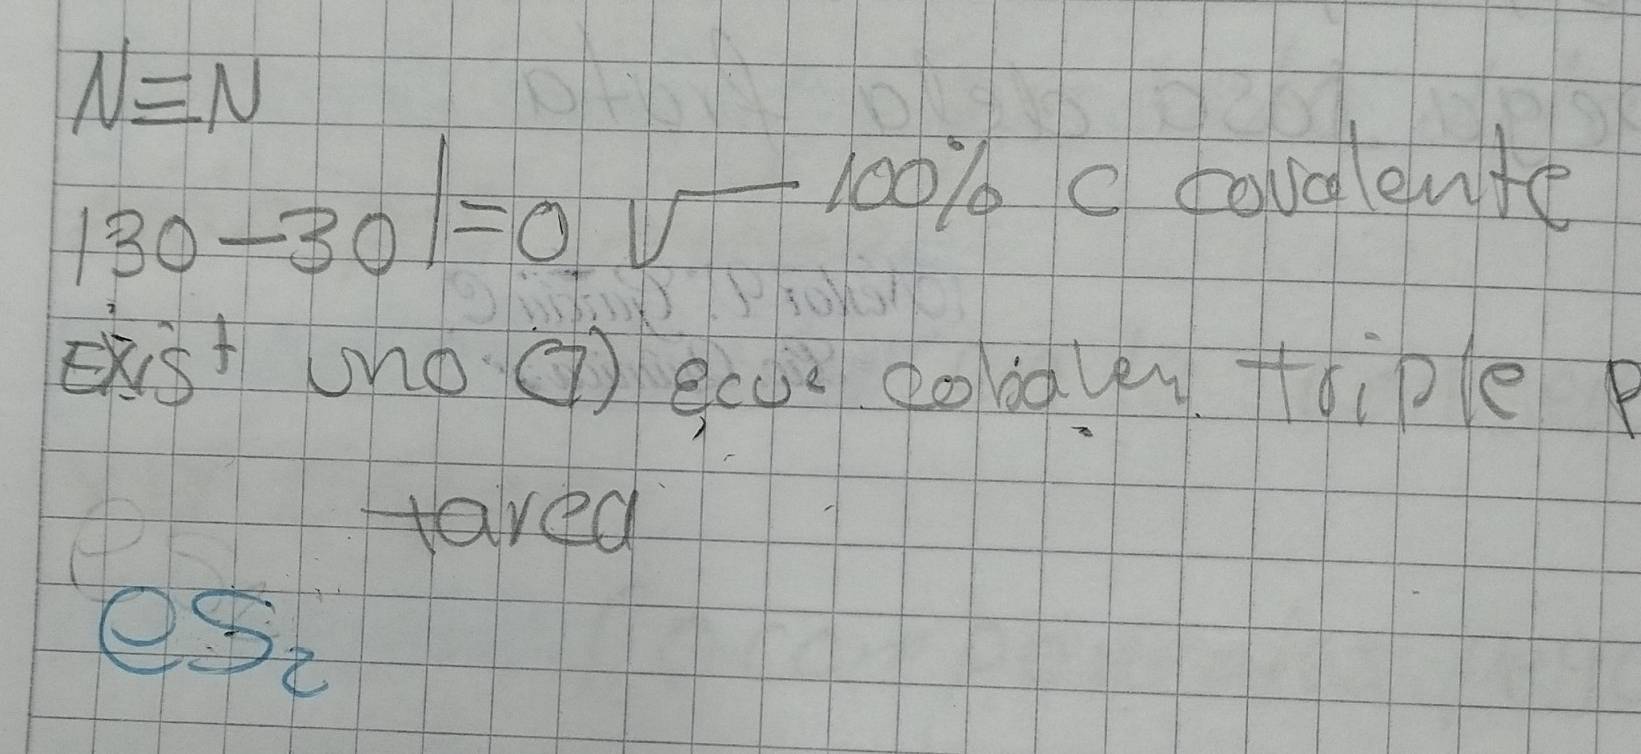 N≡N
|30-30|=0 √ 100% C covalente
Exist uno (1) covalen. triple P
tarea
es₂